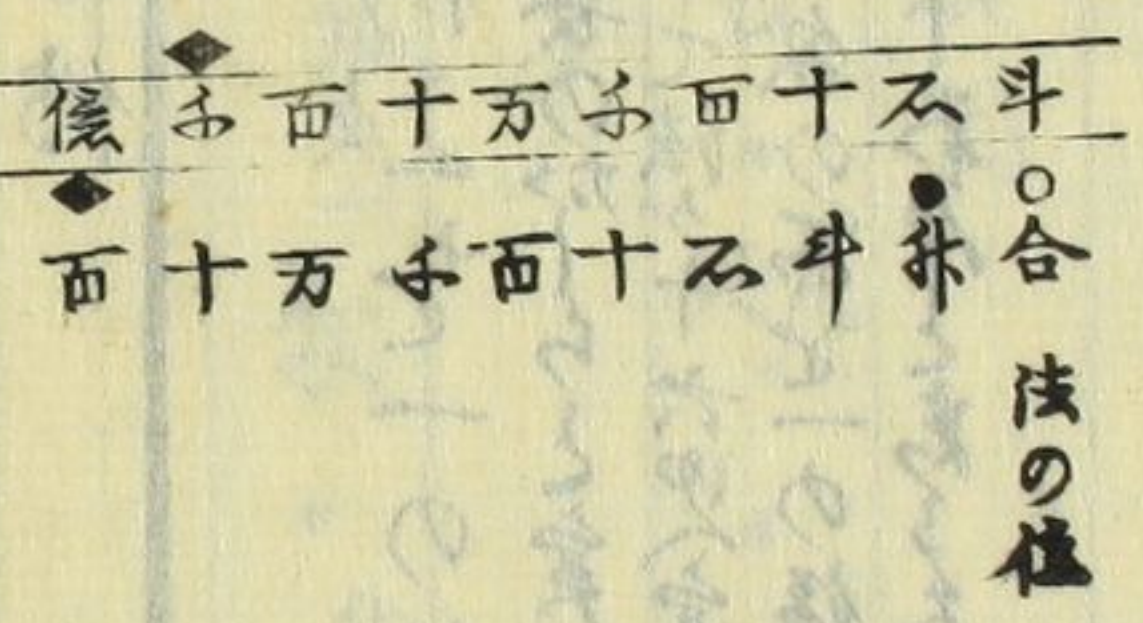 ◆
億千百十万千百十石斗
◆ ● ○
百十万千百十石斗升合
法の位